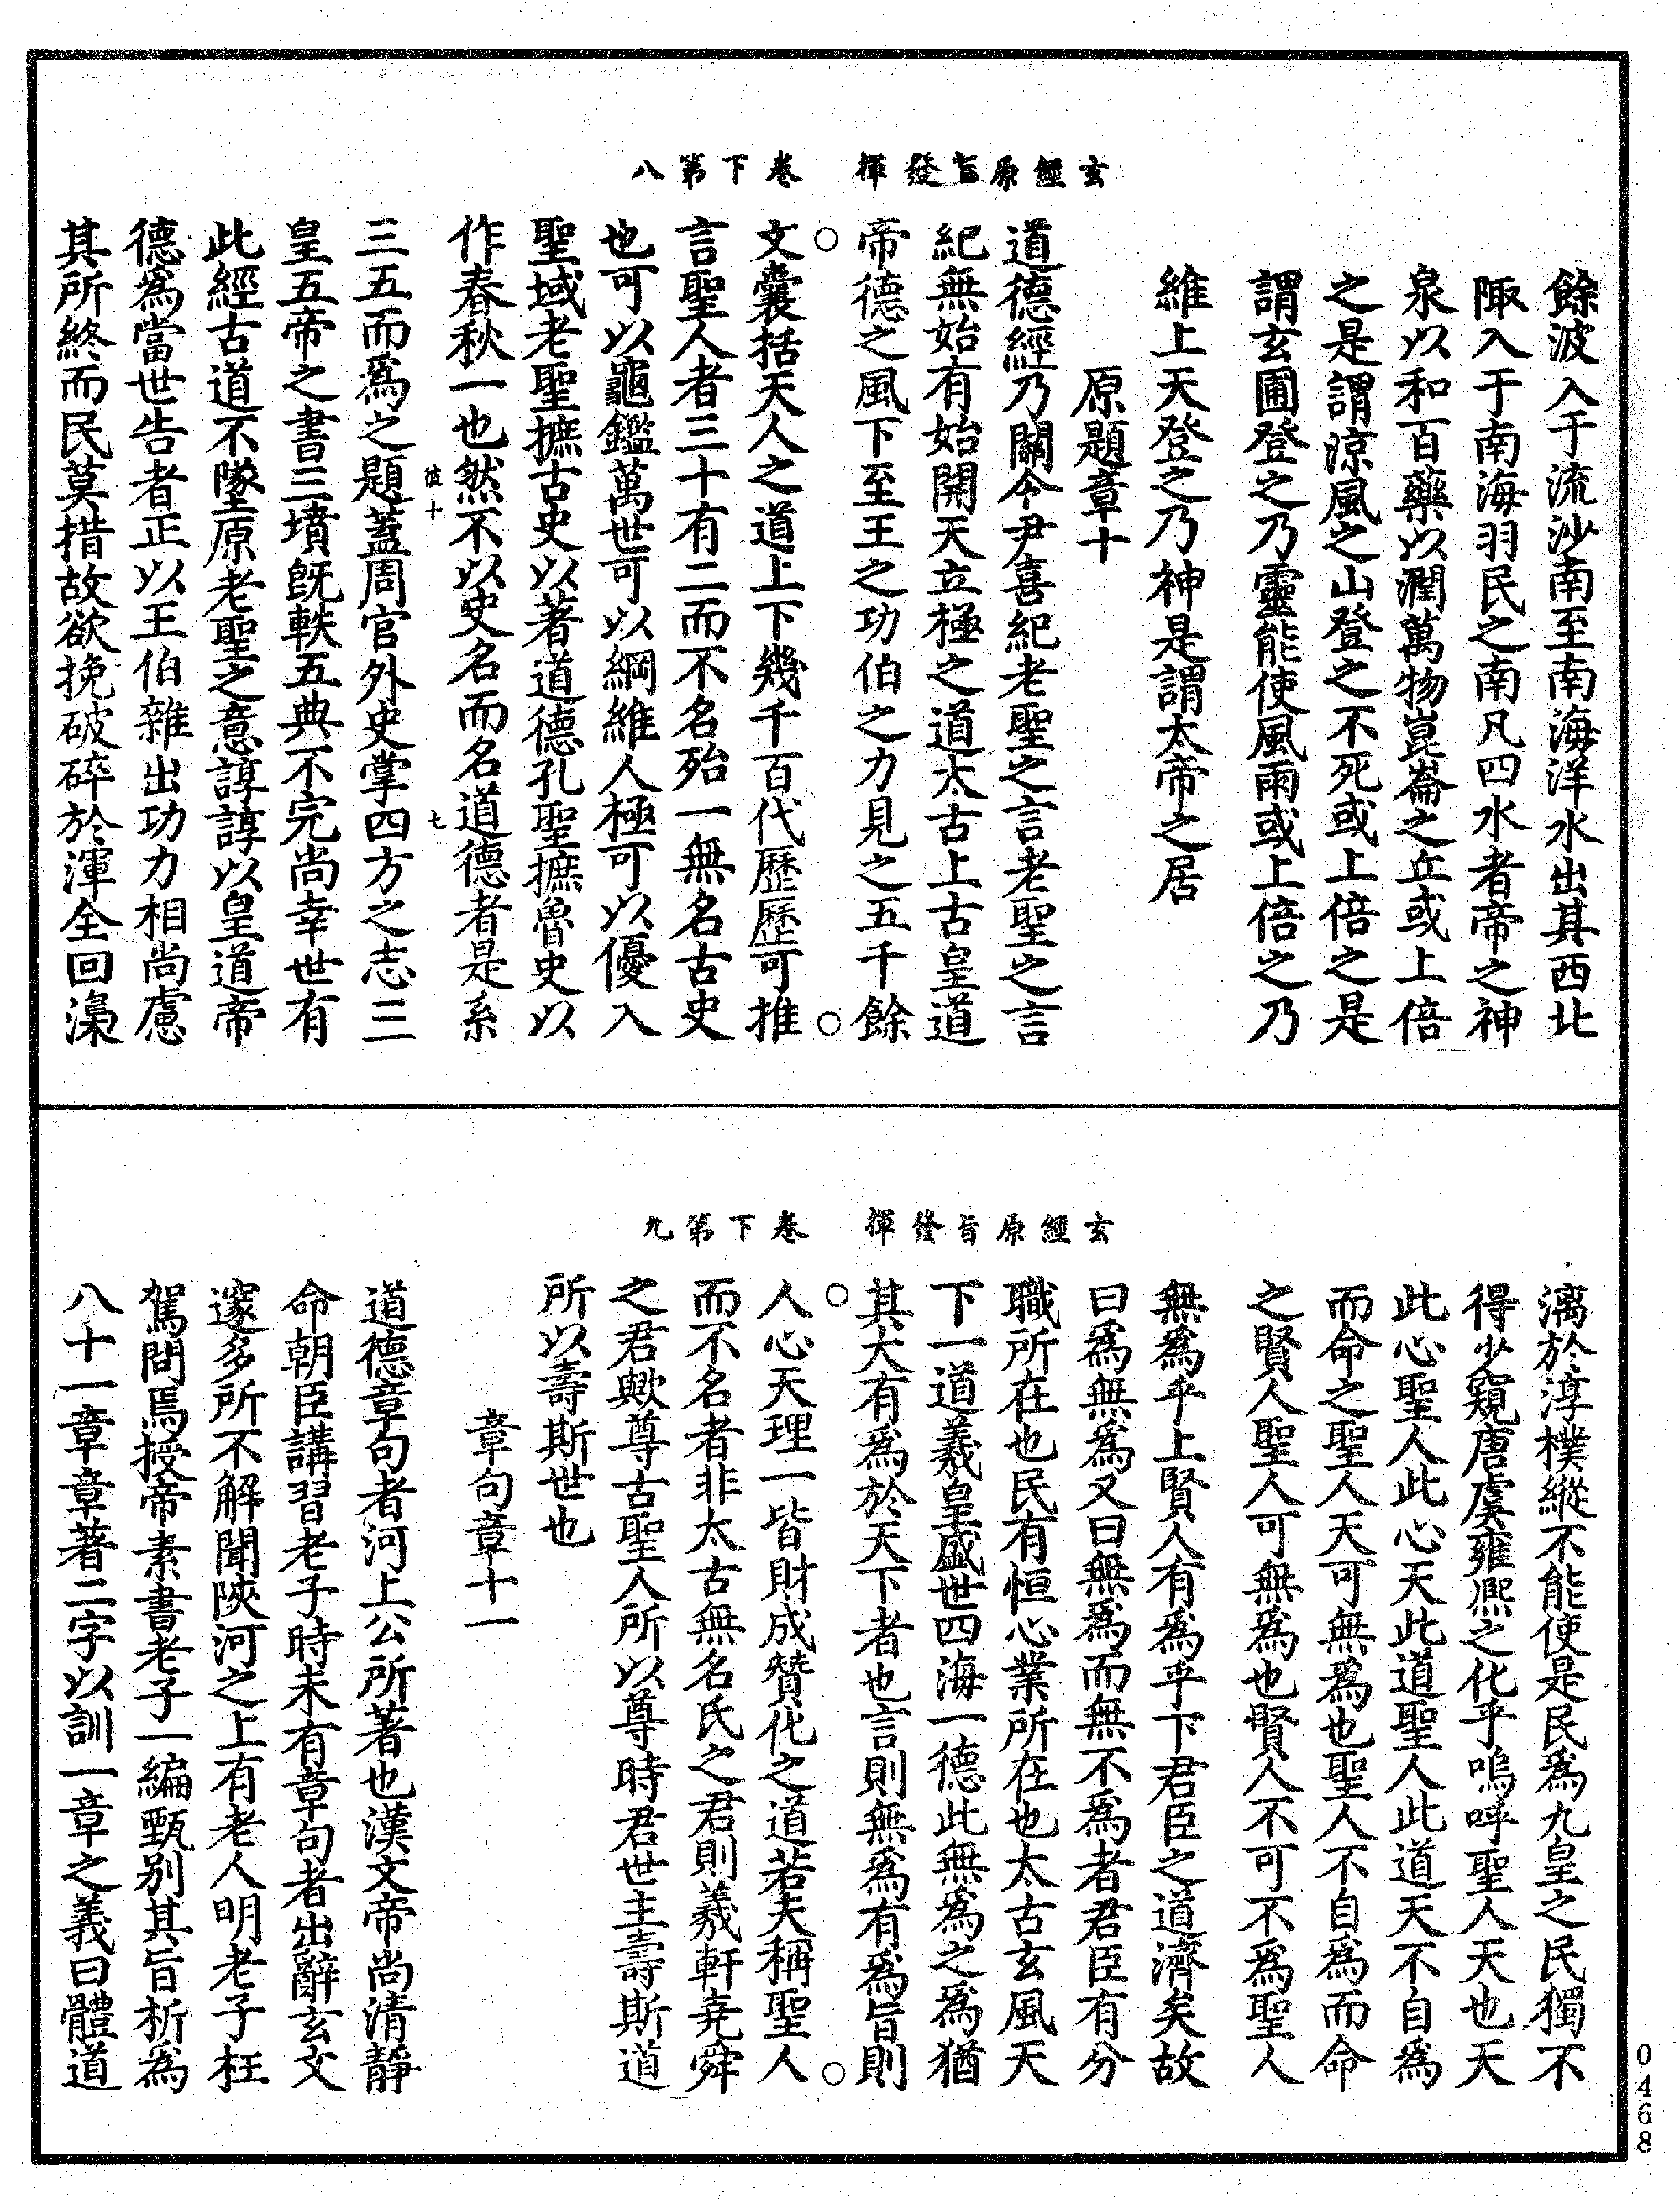 玄經原旨發揮　卷下第八
餘波入于流沙南至南海洋水出其西北
陬入于南海羽民之南凡四水者帝之神
泉以和百藥以潤萬物崑崙之丘或上倍
之是謂涼風之山登之不死或上倍之是
謂玄圃登之乃靈能使風雨或上倍之乃
維上天登之乃神是謂太帝之居
原題章十
道德經乃關令尹喜紀老聖之言老聖之言
紀無始有始開天立極之道太古上古皇道
帝德之風下至王之功伯之力見之五千餘
文囊括天人之道上下幾千百代歷歷可推
言聖人者三十有二而不名殆一無名古史
也可以龜鑑萬世可以綱維人極可以優入
聖域老聖摭古史以著道德孔聖摭魯史以
作春秋一也然不以史名而名道德者是系
彼十　七
三五而爲之題蓋周官外史掌四方之志三
皇五帝之書三墳旣軼五典不完尚幸世有
此經古道不墜原老聖之意諄諄以皇道帝
德爲當世告者正以王伯雜出功力相尚慮
其所終而民莫措故欲挽破碎於渾全回澆
玄經原旨發揮　卷下第九
漓於淳樸縱不能使是民爲九皇之民獨不
得少窺唐虞雍熙之化乎嗚呼聖人天也天
此心聖人此心天此道聖人此道天不自爲
而命之聖人天可無爲也聖人不自爲而命
之賢人聖人可無爲也賢人不可不爲聖人
無爲乎上賢人有爲乎下君臣之道濟矣故
曰爲無爲又曰無爲而無不爲者君臣有分
職所在也民有恒心業所在也太古玄風天
下一道羲皇盛世四海一德此無爲之爲猶
其大有爲於天下者也言則無爲有爲旨則
人心天理一皆財成贊化之道若夫稱聖人
而不名者非太古無名氏之君則羲軒堯舜
之君歟尊古聖人所以尊時君世主壽斯道
所以壽斯世也
章句章十一
道德章句者河上公所著也漢文帝尚清靜
命朝臣講習老子時未有章句者出辭玄文
邃多所不解聞陝河之上有老人明老子枉
駕問焉授帝素書老子一編甄别其旨析為
八十一章章著二字以訓一章之義曰體道
0468